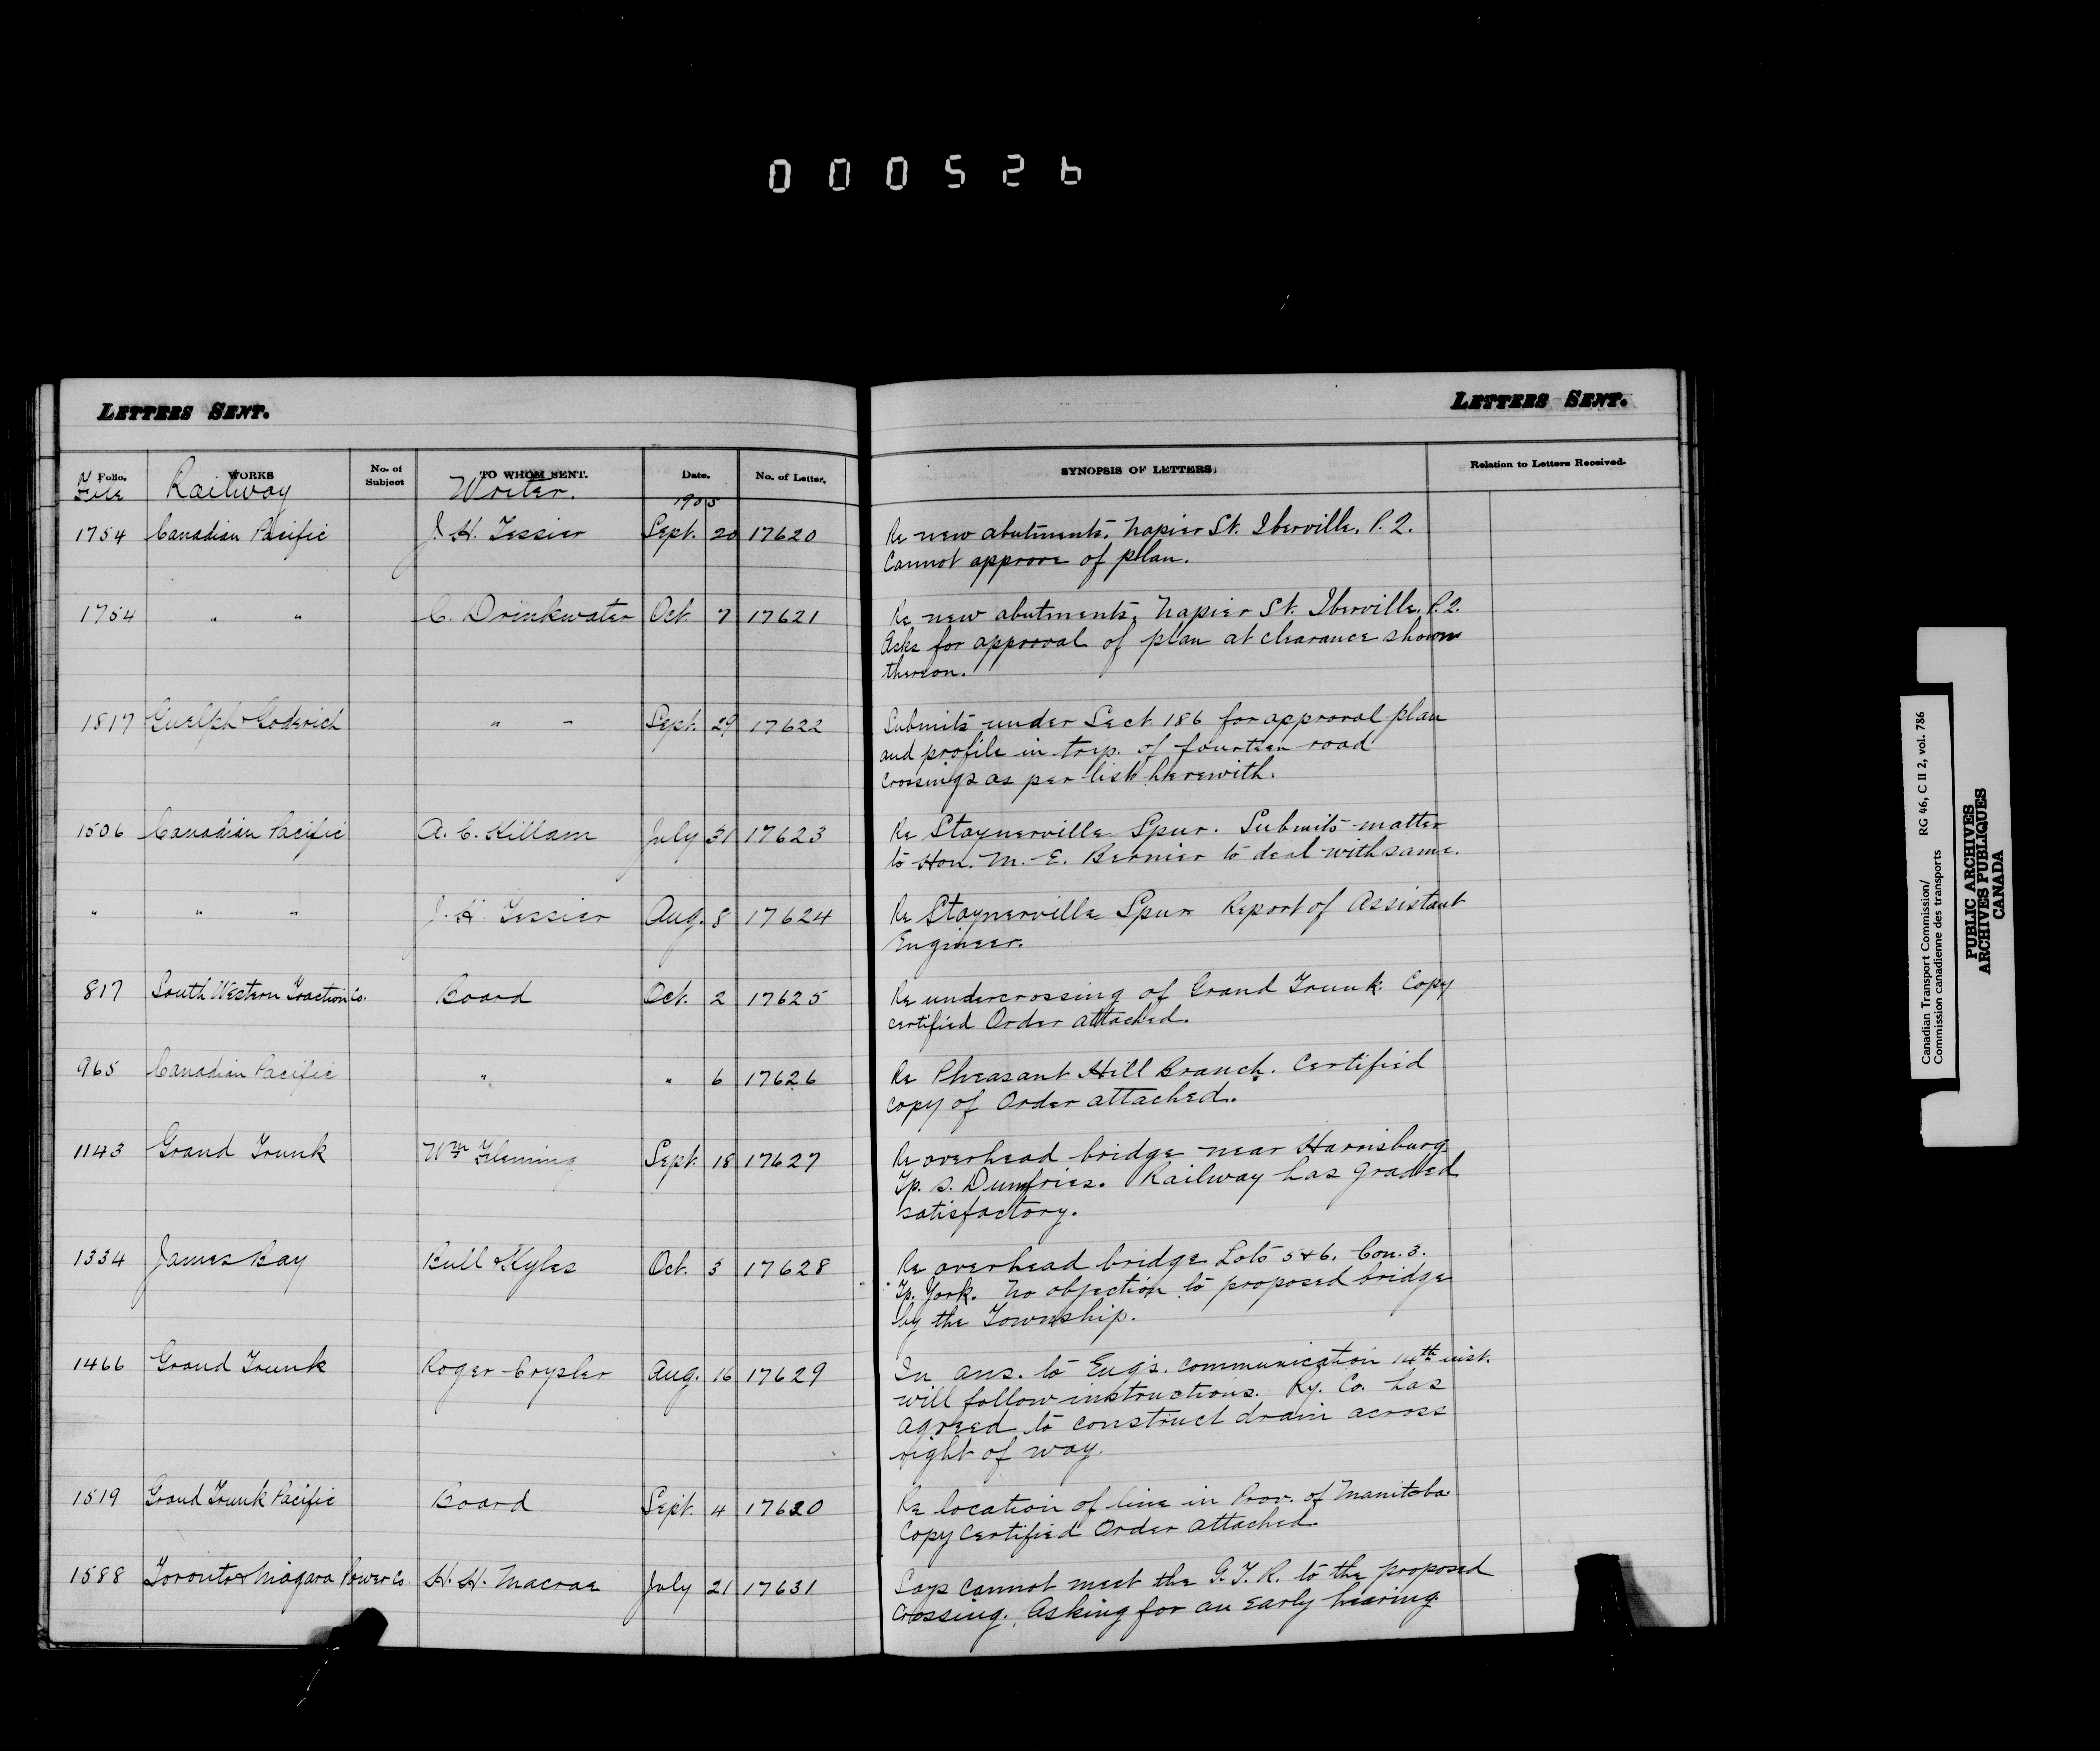 000526
LETTERS SENT.
LETTERS SENT.
Folio. WORKS No. of Subject TO WHOM SENT. Date. No. of Letter. SYNOPSIS OF LETTERS. Relation to Letters Received.
File Railway Writer. 1905
1754 Canadian Pacific J. H. Tessier Sept. 20 17620 Re new abutments, Napier St. Iberville, P. Q.
Cannot approve of plan.
1754 " " C. Drinkwater Oct. 7 17621 Re new abutments, Napier St. Iberville, P. Q.
Asks for approval of plan at clearance shown
thereon.
1817 Guelph & Goderich " " Sept. 29 17622 Submits under Sect. 186 for approval plan
and profile in trip. of fourteen road
crossings as per list herewith.
1506 Canadian Pacific A. C. Killam July 31 17623 Re Staynerville Spur. Submits matter
to Hon. M. E. Bernier to deal with same.
" " " J. H. Tessier Aug. 8 17624 Re Staynerville Spur Report of Assistant
Engineer.
817 South Western Traction Co. Board Oct. 2 17625 Re undercrossing of Grand Trunk. Copy
certified Order attached.
965 Canadian Pacific " " 6 17626 Re Pheasant Hill Branch. Certified
copy of Order attached.
1143 Grand Trunk Wm Fleming Sept. 18 17627 Re overhead bridge near Harrisburg
Tp. S. Dumfries. Railway has graded
satisfactory.
1334 James Bay Bull & Kyles Oct. 3 17628 Re overhead bridge Lots 5 & 6, Con. 3.
Tp. York. No objection to proposed bridge
by the Township.
1466 Grand Trunk Roger Crysler Aug. 16 17629 In ans. to Eng's. communication 14th inst.
will follow instructions. Ry. Co. has
agreed to construct drain across
right of way.
1519 Grand Trunk Pacific Board Sept. 4 17630 Re location of line in Prov. of Manitoba
Copy Certified Order attached.
1588 Toronto & Niagara Power Co. H. H. Macrae July 21 17631 Says cannot meet the G. T. R. to the proposed
crossing. Asking for an early hearing.
Canadian Transport Commission/ RG 46, C II 2, vol. 786
Commission canadienne des transports
PUBLIC ARCHIVES
ARCHIVES PUBLIQUES
CANADA